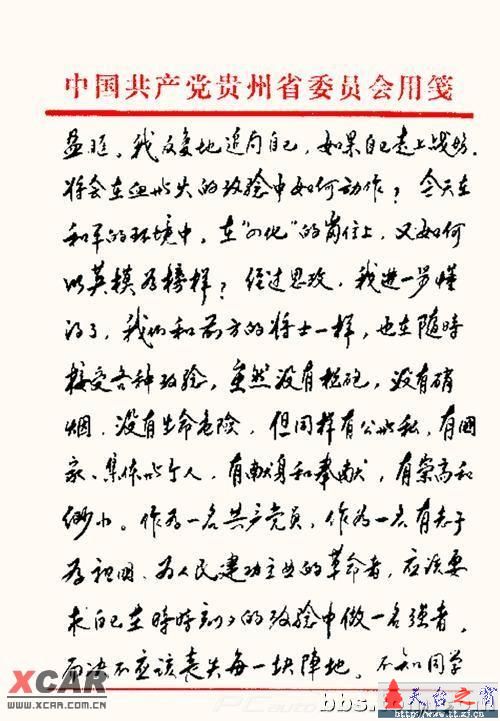 中国共产党贵州省委员会用笺
盈眶。我反复地追问自己,如果自己走上战场,
将会在血与火的攷验中如何动作?今天在
和平的环境中,在“四化”的岗位上,又如何
以英模为榜样?经过思攷,我进一步懂
得了,我们和前方的将士一样,也在随時
接受各种攷验,虽然没有枪砲,没有硝
烟,没有生命危险,但同样有公与私,有國
家、集体与个人,有献身和奉献,有崇高和
渺小。作为一名共产党员,作为一名有志于
为祖国、为人民建功立业的革命者,应该要
求自己在時時刻々的攷验中做一名强者,
而决不应该丧失每一块阵地。不知同学
XCAR
WWW.XCAR.COM.CN
bbs.
天台之窗